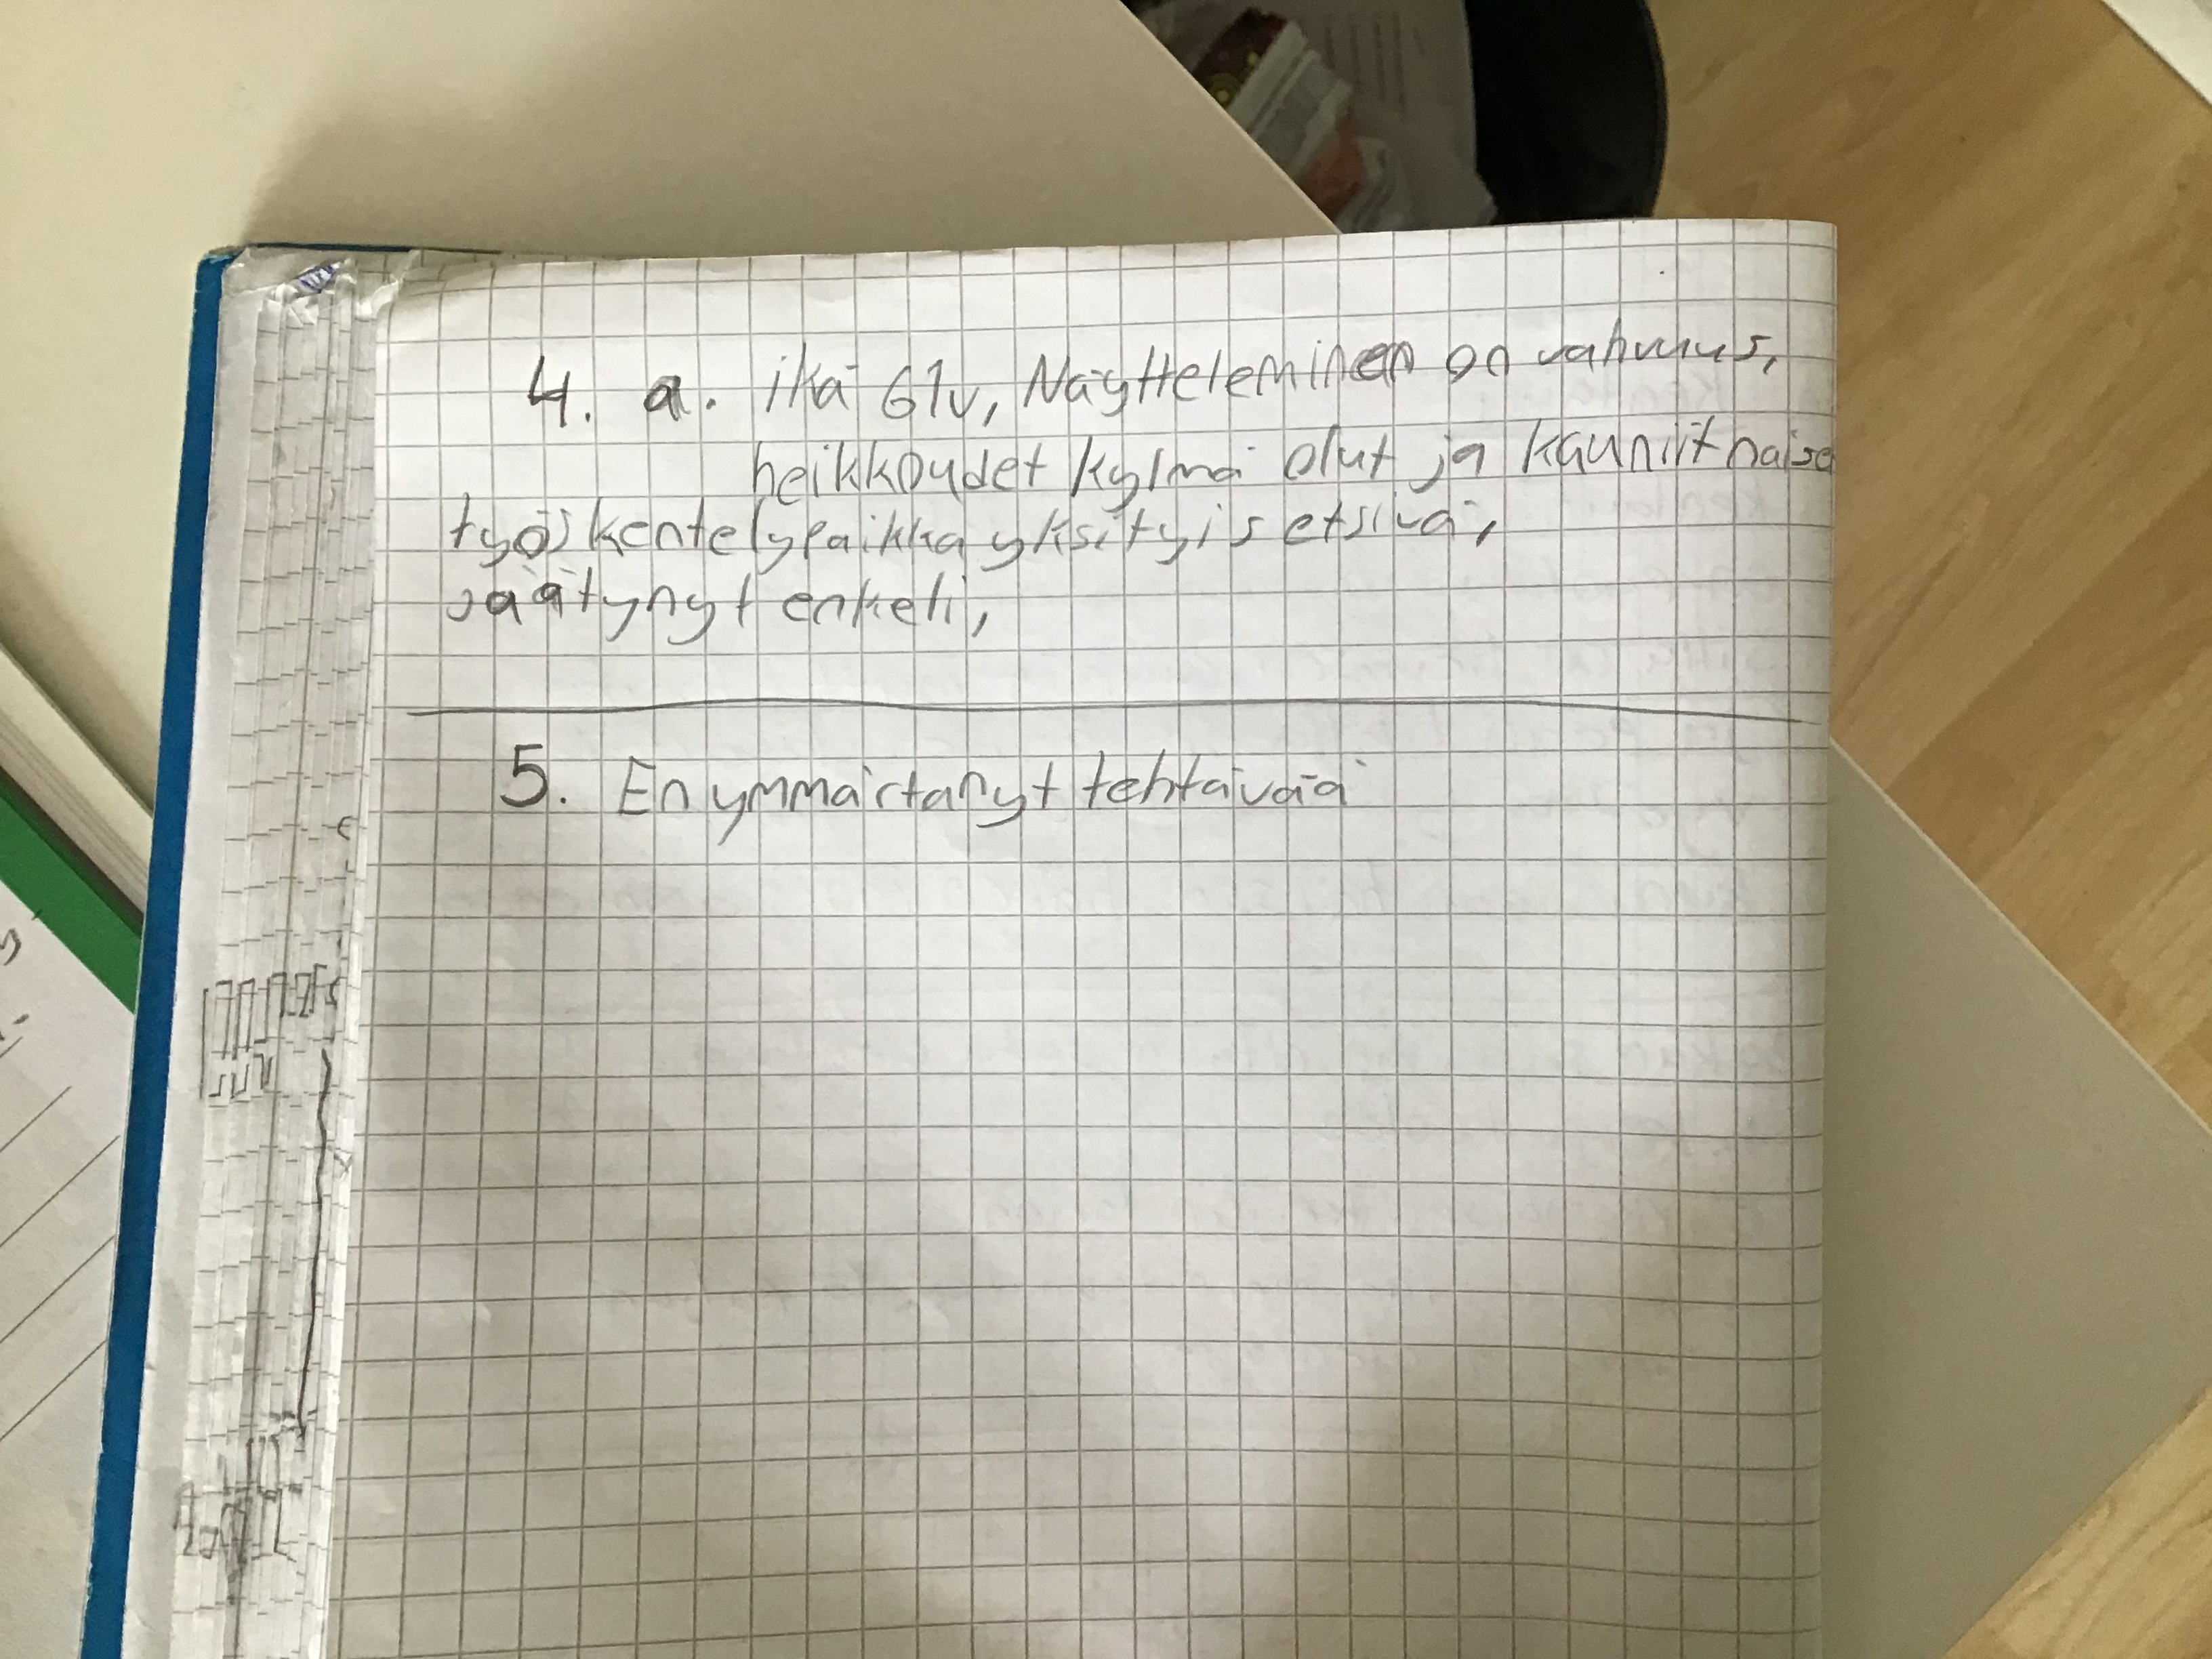 4. a. ikä 61v, Näytteleminen on vahvuus,
heikkoudet kylmä olut ja kauniit naise
työskentelypaikka yksityis etsivä,
jäätynyt enkeli,
5. En ymmärtänyt tehtävää